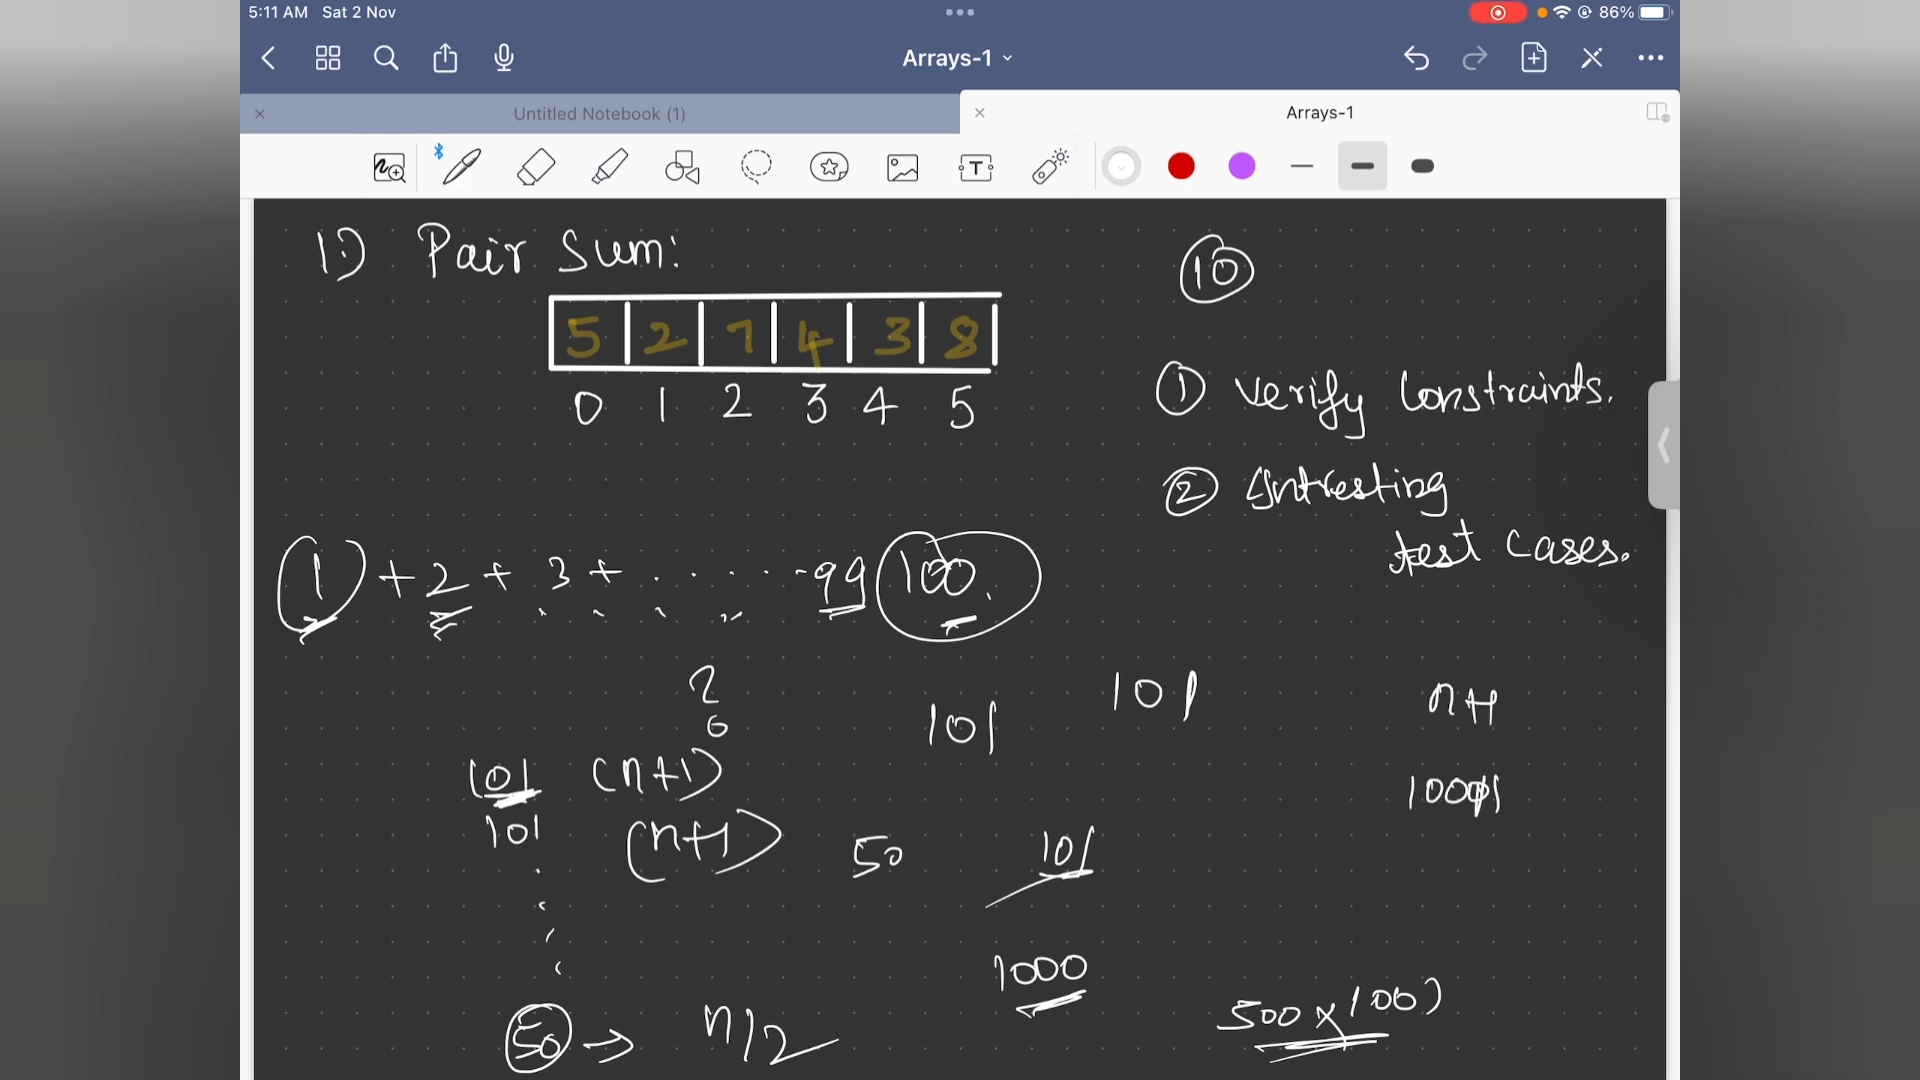 5:11 AM Sat 2 Nov
86%
Arrays-1
Untitled Notebook (1)
Arrays-1
1.) Pair Sum:
10
5 2 7 4 3 8
0 1 2 3 4 5
① Verify Constraints.
② Intresting
test cases.
1 + 2 + 3 + . . . . . - 99 100.
101
101
n+1
101 (n+1)
1001
101 (n+1)
50
101
1000
50 → n/2
500 x 1001